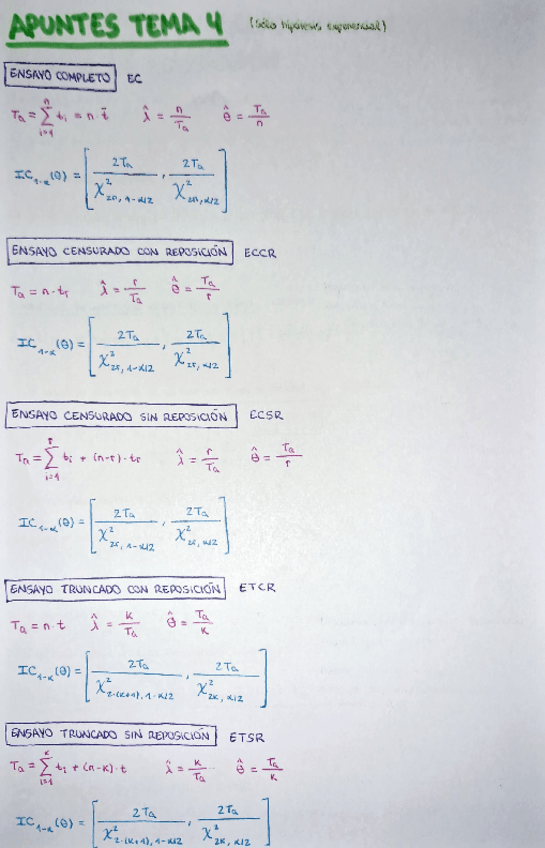 APUNTES TEMA 4 (sólo hipótesis exponencial)
ENSAYO COMPLETO EC
Ta = Σ_{i=1}^{n} ti = n · t̄   λ̂ = n/Ta   θ̂ = Ta/n
IC_{1-α}(θ) = [2Ta/χ²_{2n, 1-α/2}, 2Ta/χ²_{2n, α/2}]
ENSAYO CENSURADO CON REPOSICIÓN ECCR
Ta = n · tr   λ̂ = r/Ta   θ̂ = Ta/r
IC_{1-α}(θ) = [2Ta/χ²_{2r, 1-α/2}, 2Ta/χ²_{2r, α/2}]
ENSAYO CENSURADO SIN REPOSICIÓN ECSR
Ta = Σ_{i=1}^{r} ti + (n-r) · tr   λ̂ = r/Ta   θ̂ = Ta/r
IC_{1-α}(θ) = [2Ta/χ²_{2r, 1-α/2}, 2Ta/χ²_{2r, α/2}]
ENSAYO TRUNCADO CON REPOSICIÓN ETCR
Ta = n · t   λ̂ = k/Ta   θ̂ = Ta/k
IC_{1-α}(θ) = [2Ta/χ²_{2·(k+1), 1-α/2}, 2Ta/χ²_{2k, α/2}]
ENSAYO TRUNCADO SIN REPOSICIÓN ETSR
Ta = Σ_{i=1}^{k} ti + (n-k) · t   λ̂ = k/Ta   θ̂ = Ta/k
IC_{1-α}(θ) = [2Ta/χ²_{2·(k+1), 1-α/2}, 2Ta/χ²_{2k, α/2}]